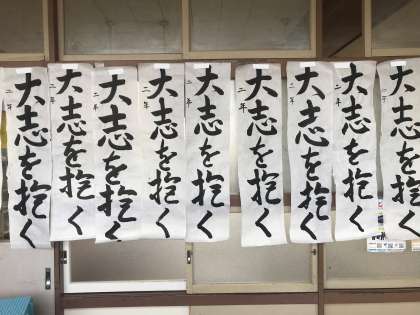 大志を抱く
二年
大志を抱く
二年
大志を抱く
二年
大志を抱く
二年
大志を抱く
二年
大志を抱く
二年
大志を抱く
二年
大志を抱く
二年
大志を抱く
二年